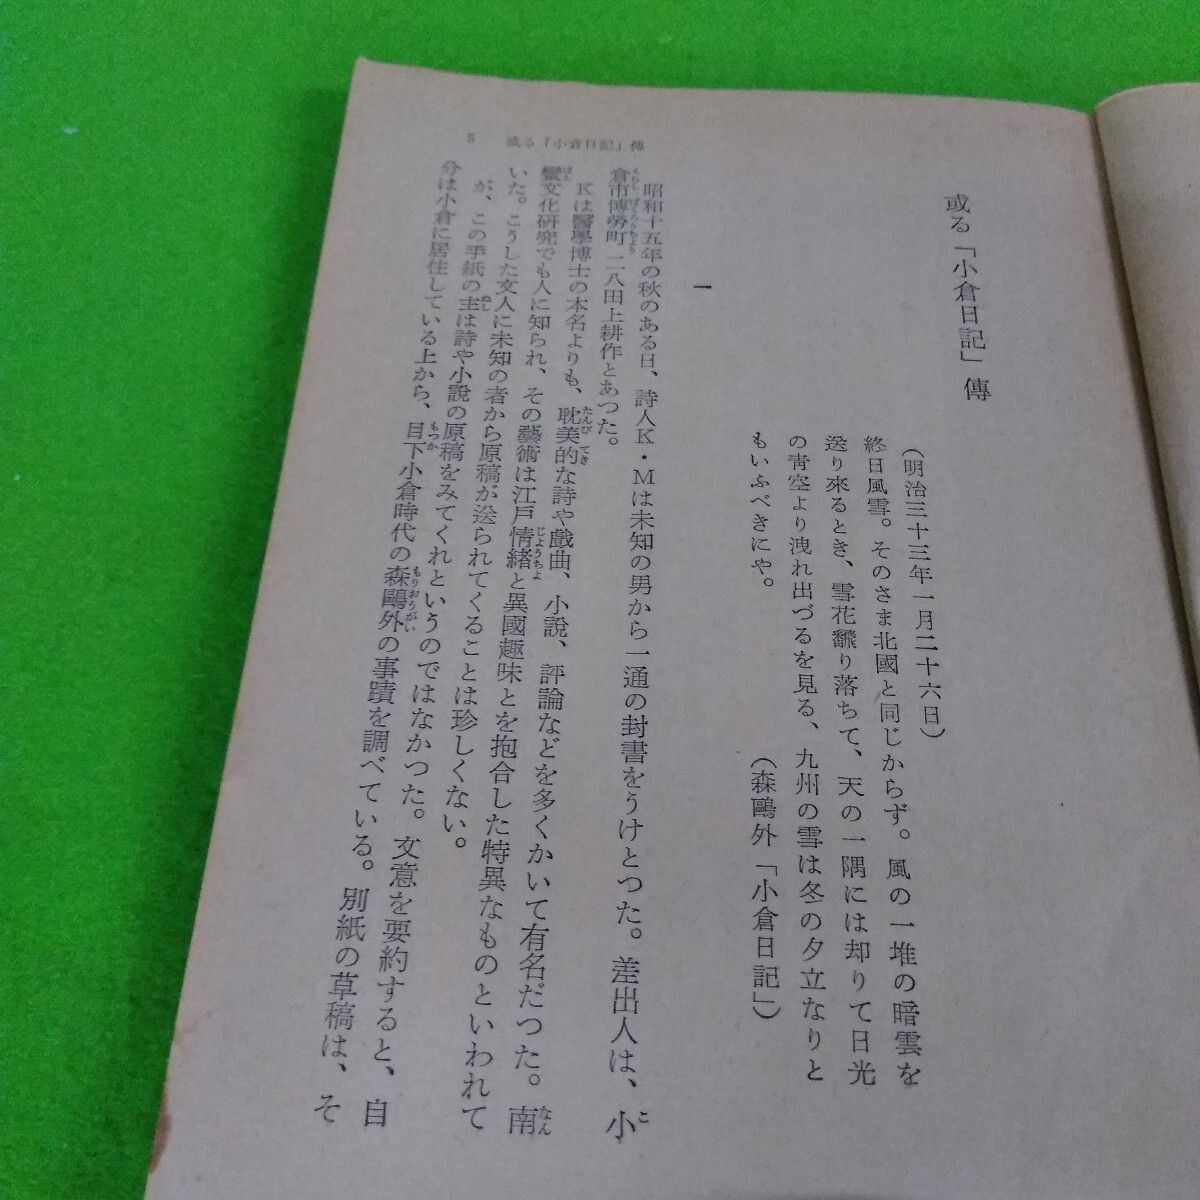 或る「小倉日記」傳
(明治三十三年一月二十六日)
終日風雪。そのさま北國と同じからず。風の一堆の暗雲を
送り來るとき、雪花飜り落ちて、天の一隅には却りて日光
の青空より洩れ出づるを見る、九州の雪は冬の夕立なりと
もいふべきにや。
(森鷗外「小倉日記」)
一
昭和十五年の秋のある日、詩人K・Mは未知の男から一通の封書をうけとつた。差出人は、小
倉市博勞町二八田上耕作とあつた。
Kは醫學博士の本名よりも、耽美的な詩や戲曲、小說、評論などを多くかいて有名だつた。南
蠻文化研究でも人に知られ、その藝術は江戶情緖と異國趣味とを抱合した特異なものといわれて
いた。こうした文人に未知の者から原稿が送られてくることは珍しくない。
が、この手紙の主は詩や小說の原稿をみてくれというのではなかつた。文意を要約すると、自
分は小倉に居住している上から、目下小倉時代の森鷗外の事蹟を調べている。別紙の草稿は、そ
5 或る「小倉日記」傳